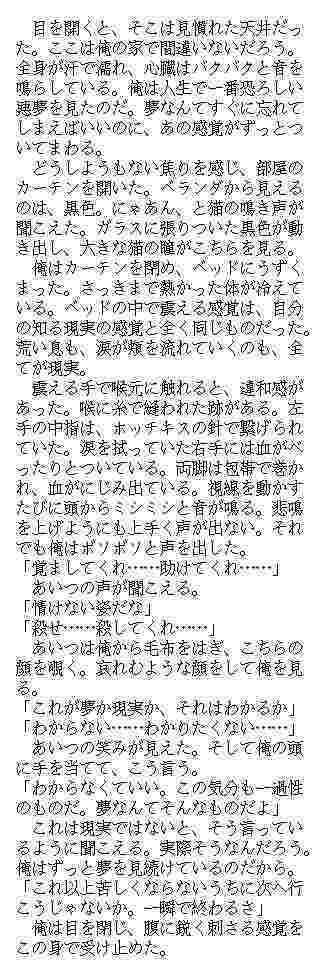 目を開くと、そこは見慣れた天井だっ
た。ここは俺の家で間違いないだろう。
全身が汗で濡れ、心臓はバクバクと音を
鳴らしている。俺は人生で一番恐ろしい
悪夢を見たのだ。夢なんてすぐに忘れて
しまえばいいのに、あの感覚がずっとつ
いてまわる。
　どうしようもない焦りを感じ、部屋の
カーテンを開いた。ベランダから見える
のは、黒色。にゃあん、と猫の鳴き声が
聞こえた。ガラスに張りついた黒色が動
き出し、大きな猫の瞳がこちらを見る。
　俺はカーテンを閉め、ベッドにうずく
まった。さっきまで熱かった体が冷えて
いる。ベッドの中で震える感覚は、自分
の知る現実の感覚と全く同じものだった。
荒い息も、涙が頬を流れていくのも、全
てが現実。
　震える手で喉元に触れると、違和感が
あった。喉に糸で縫われた跡がある。左
手の中指は、ホッチキスの針で繋げられ
ていた。涙を拭っていた右手には血がべ
ったりとついている。両脚は包帯で巻か
れ、血がにじみ出ている。視線を動かす
たびに頭からミシミシと音が鳴る。悲鳴
を上げようにも上手く声が出ない。それ
でも俺はボソボソと声を出した。
「覚ましてくれ……助けてくれ……」
　あいつの声が聞こえる。
「情けない姿だな」
「殺せ……殺してくれ……」
　あいつは俺から毛布をはぎ、こちらの
顔を覗く。哀れむような顔をして俺を見
る。
「これが夢か現実か、それはわかるか」
「わからない……わかりたくない……」
　あいつの笑みが見えた。そして俺の頭
に手を当てて、こう言う。
「わからなくていい。この気分も一過性
のものだ。夢なんてそんなものだよ」
　これは現実ではないと、そう言ってい
るように聞こえる。実際そうなんだろう。
俺はずっと夢を見続けているのだから。
「これ以上苦しくならないうちに次へ行
こうじゃないか。一瞬で終わるさ」
　俺は目を閉じ、腹に鋭く刺さる感覚を
この身で受け止めた。